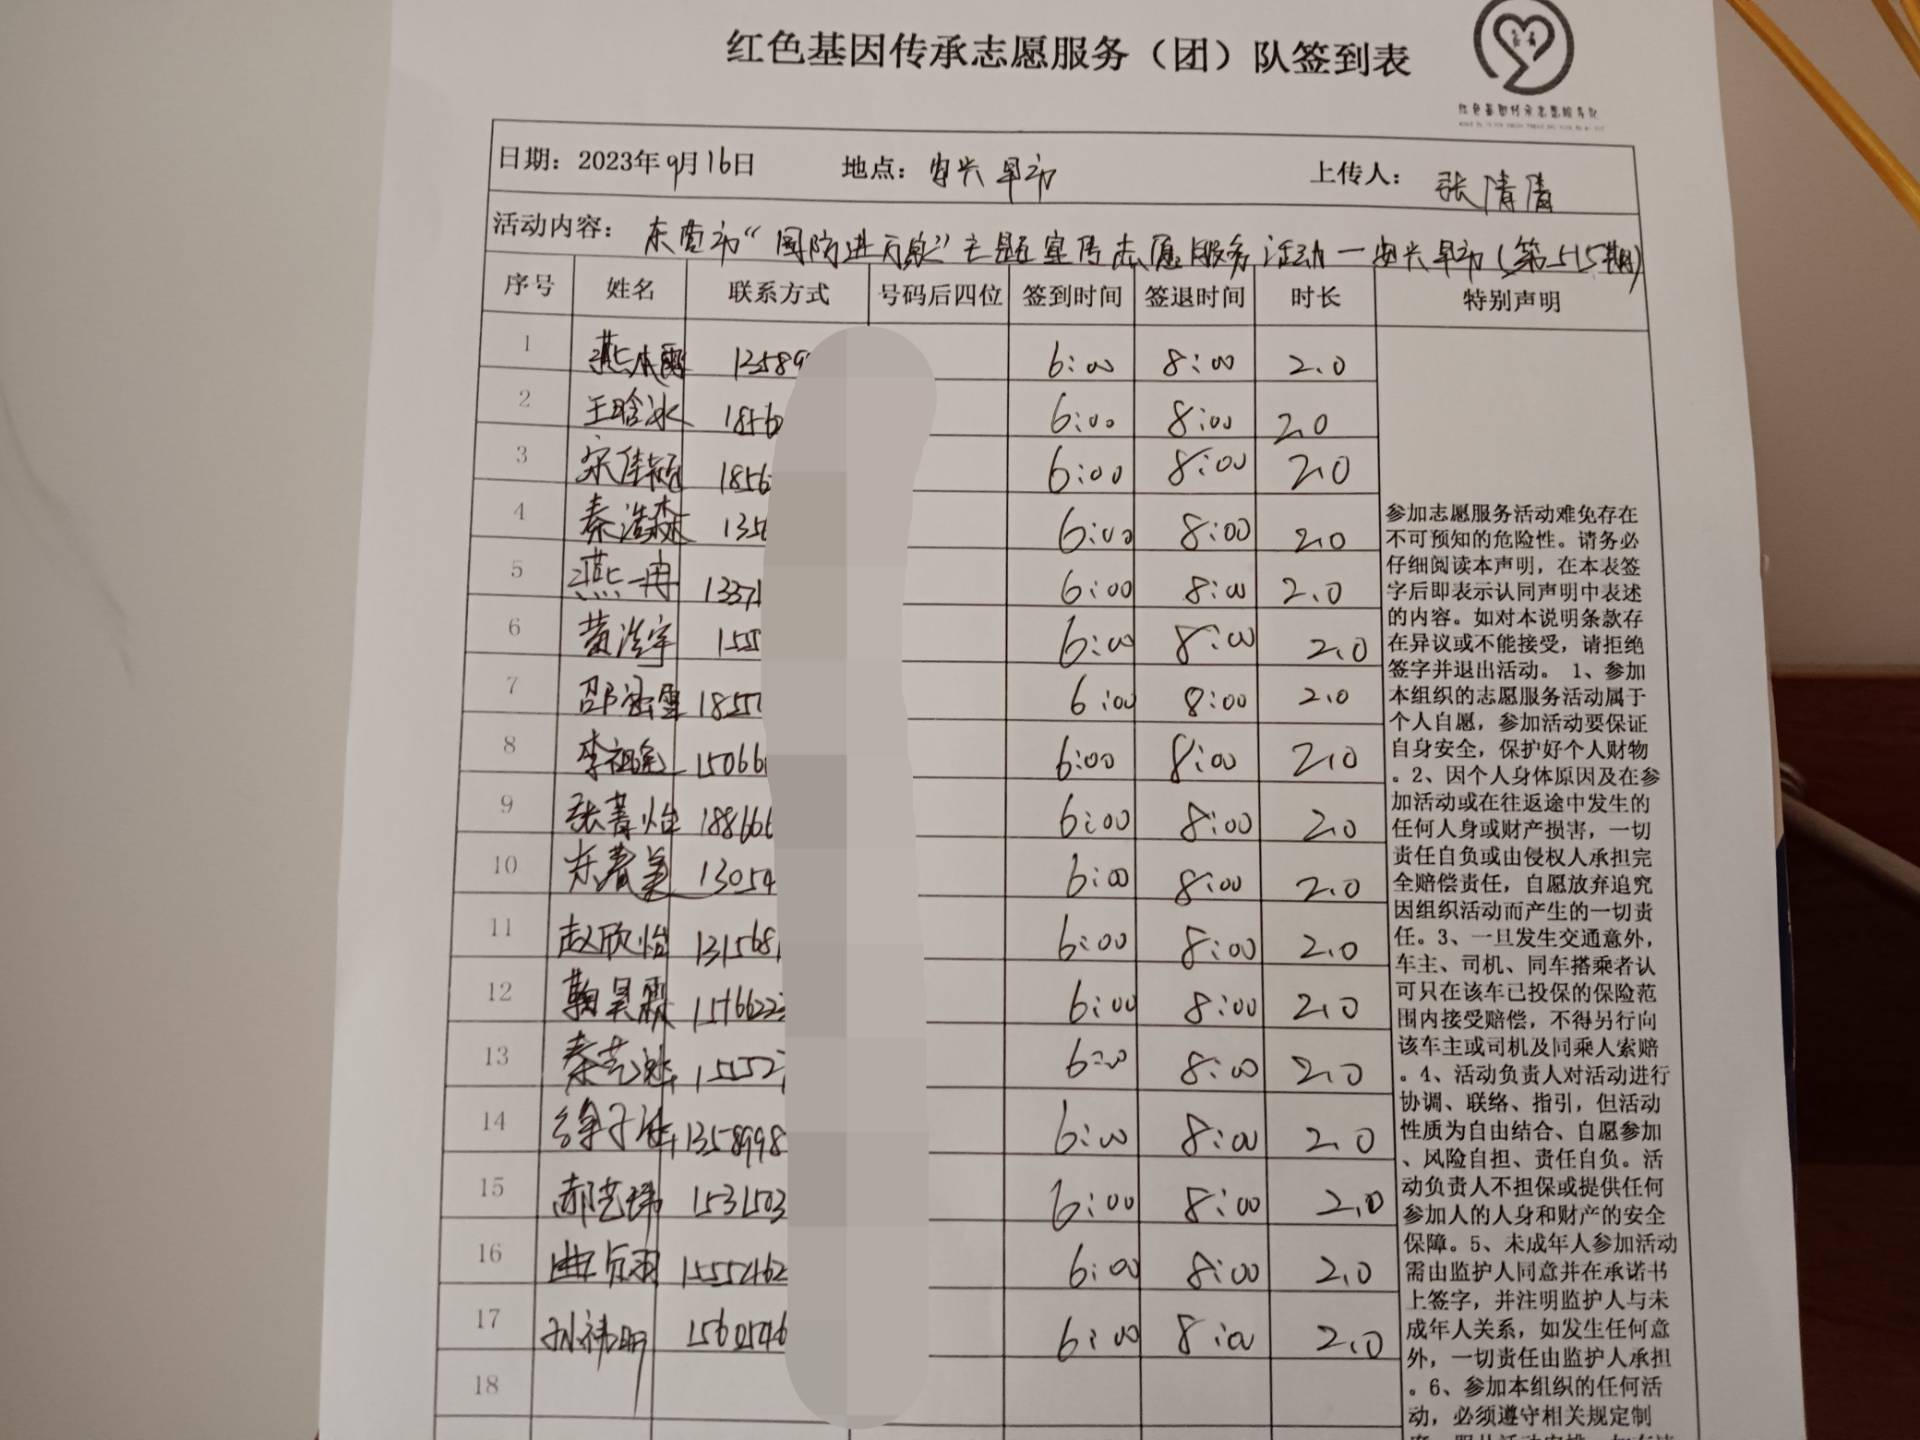 红色基因传承志愿服务（团）队签到表
红色基因传承志愿服务队
日期：2023年9月16日 地点：安兴早市 上传人：张清清
活动内容：东营市“国防进万家”主题宣传志愿服务活动—安兴早市（第515期）
序号 姓名 联系方式 号码后四位 签到时间 签退时间 时长 特别声明
1 燕本雷 13589 6:00 8:00 2.0
2 王晗冰 1856 6:00 8:00 2.0
3 宋佳颖 1856 6:00 8:00 2.0
4 秦浩森 135 6:00 8:00 2.0
5 燕冉 1337 6:00 8:00 2.0
6 黄浩宇 155 6:00 8:00 2.0
7 邵涵雪 1855 6:00 8:00 2.0
8 李祖 15066 6:00 8:00 2.0
9 张菁怡 188666 6:00 8:00 2.0
10 东春美 13054 6:00 8:00 2.0
11 赵欣怡 131568 6:00 8:00 2.0
12 鞠昊霖 1546622 6:00 8:00 2.0
13 秦艺 15552 6:00 8:00 2.0
14 徐子涵 1358998 6:00 8:00 2.0
15 郝艺 1531503 6:00 8:00 2.0
16 曲贞羽 15552462 6:00 8:00 2.0
17 孙祎明 1560546 6:00 8:00 2.0
18
参加志愿服务活动难免存在
不可预知的危险性。请务必
仔细阅读本声明，在本表签
字后即表示认同声明中表述
的内容。如对本说明条款存
在异议或不能接受，请拒绝
签字并退出活动。1、参加
本组织的志愿服务活动属于
个人自愿，参加活动要保证
自身安全，保护好个人财物
。2、因个人身体原因及在参
加活动或在往返途中发生的
任何人身或财产损害，一切
责任自负或由侵权人承担完
全赔偿责任，自愿放弃追究
因组织活动而产生的一切责
任。3、一旦发生交通意外，
车主、司机、同车搭乘者认
可只在该车已投保的保险范
围内接受赔偿，不得另行向
该车主或司机及同乘人索赔
。4、活动负责人对活动进行
协调、联络、指引，但活动
性质为自由结合、自愿参加
、风险自担、责任自负。活
动负责人不担保或提供任何
参加人的人身和财产的安全
保障。5、未成年人参加活动
需由监护人同意并在承诺书
上签字，并注明监护人与未
成年人关系，如发生任何意
外，一切责任由监护人承担
。6、参加本组织的任何活
动，必须遵守相关规定制